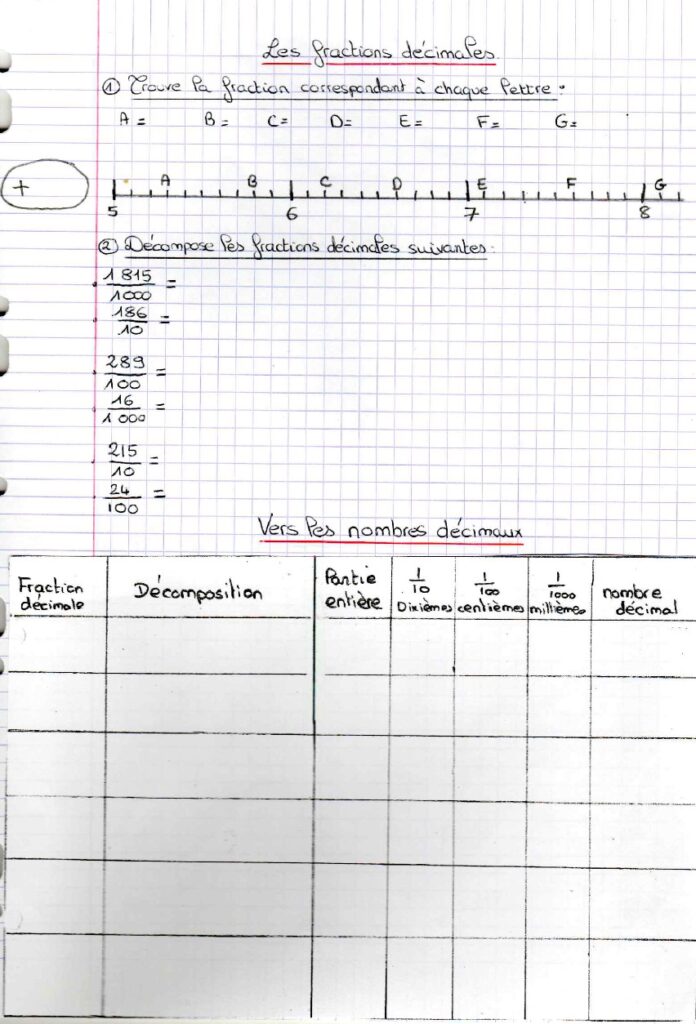 Les fractions décimales.
① Trouve la fraction correspondant à chaque lettre :
A = B = C = D= E = F = G=
+
A B C D E F G
5 6 7 8
② Décompose les fractions décimales suivantes :
1815/1000 =
186/10 =
289/100 =
16/1000 =
215/10 =
24/100 =
Vers les nombres décimaux
Fraction décimale | Décomposition | Partie entière | 1/10 Dixièmes | 1/100 centièmes | 1/1000 millièmes | nombre décimal